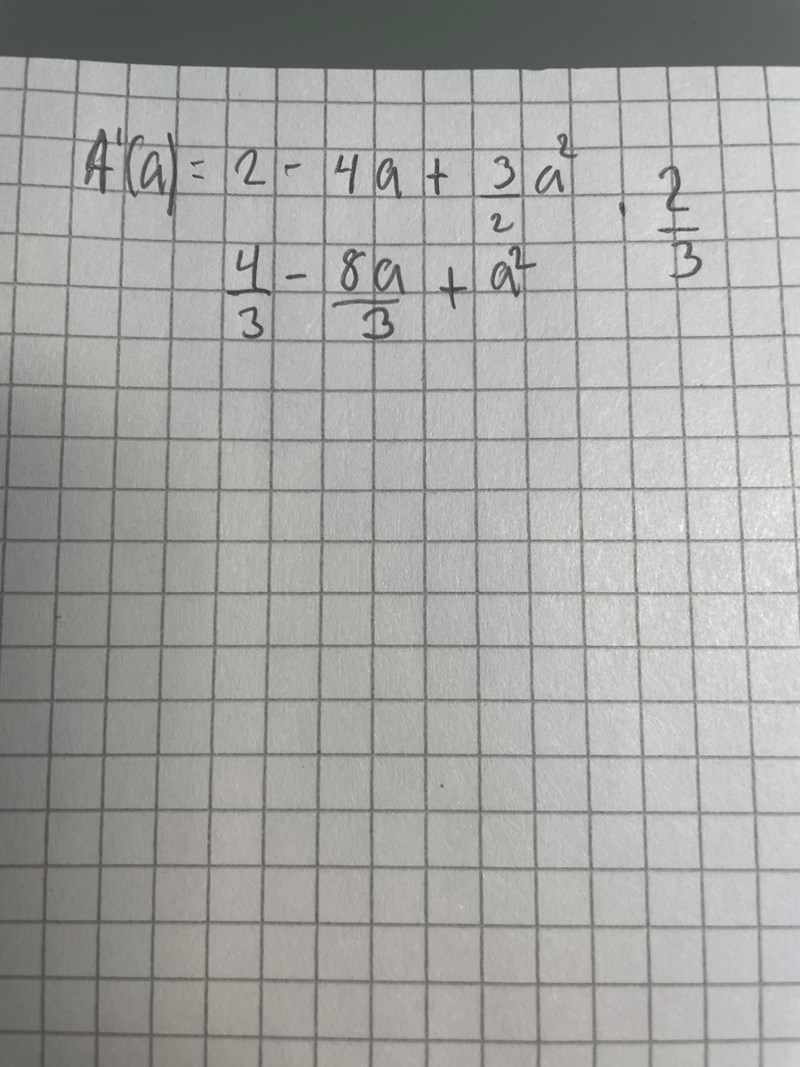 A'(a) = 2 - 4a + 3/2 a² · 2/3
4/3 - 8a/3 + a²